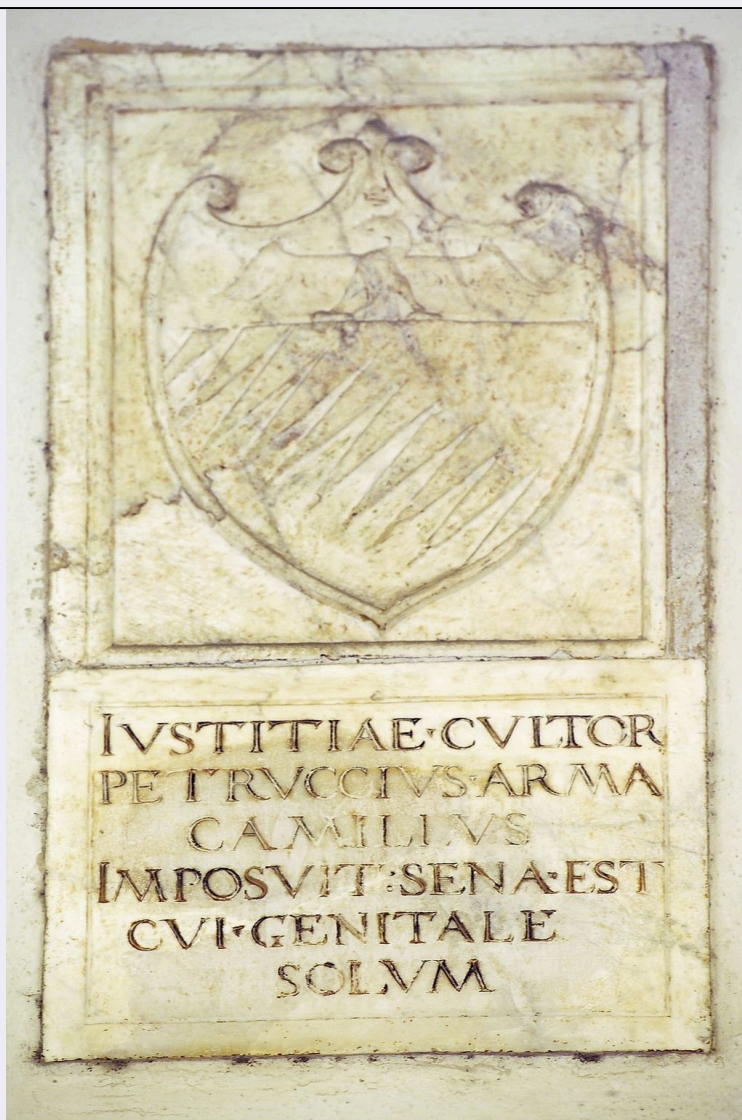 IVSTITIAE·CVLTOR
PETRVCCIVS·ARMA
CAMILLVS
IMPOSVIT:SENA·EST
CVI·GENITALE
SOLVM